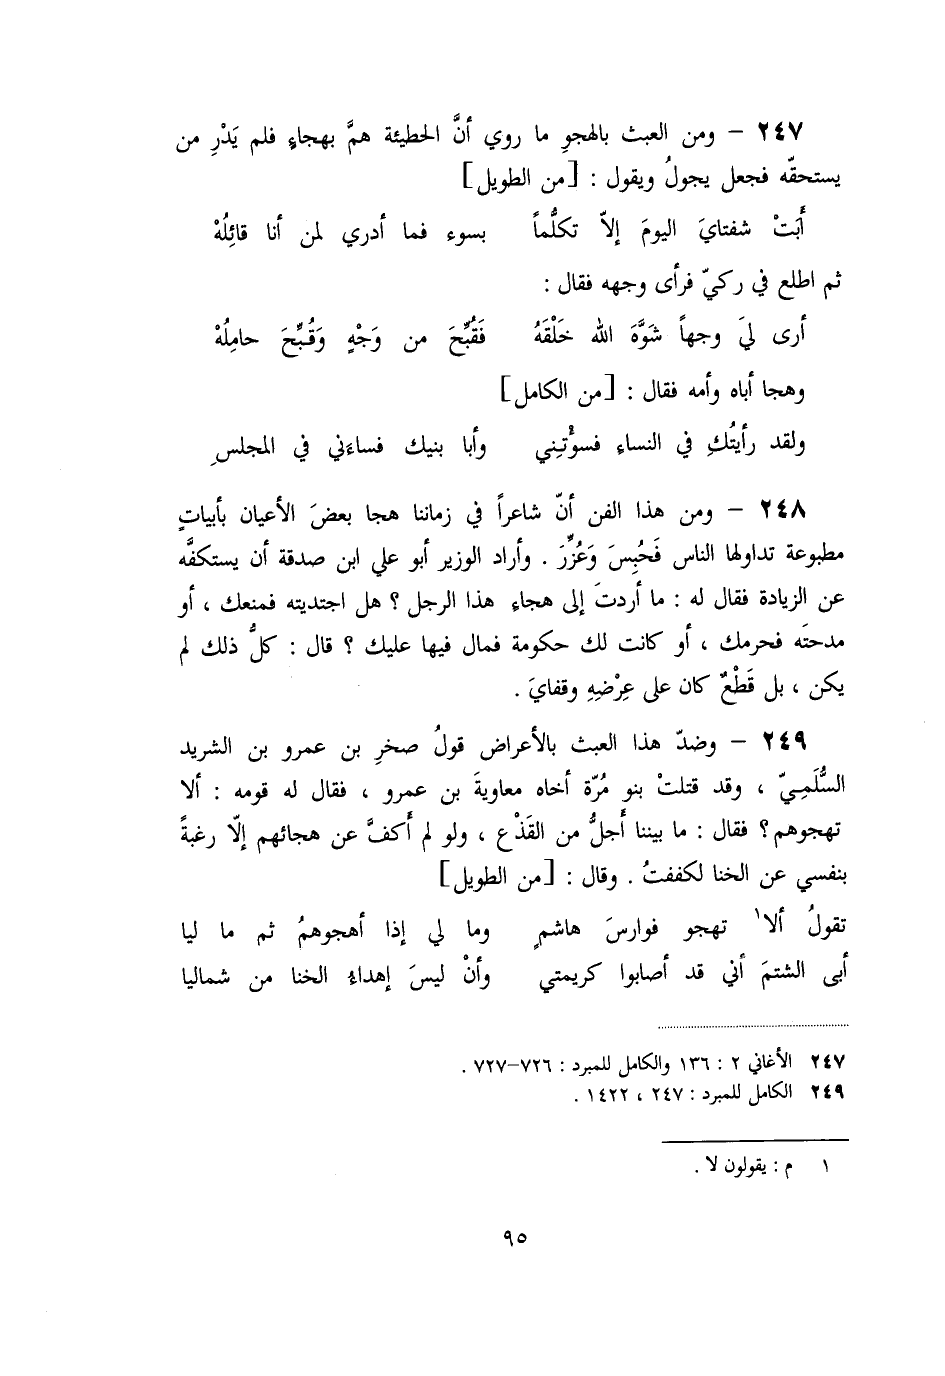 ٢٤٧ – ومن العبث بالهجوِ ما روي أنَّ الحطيئة همَّ بهجاءٍ فلم يَدْرِ من
يستحقّه فجعل يجولُ ويقول : [من الطويل]
أَبَتْ شفتايَ اليومَ إلاّ تكلُّماً بسوء فما أدري لمن أنا قائِلُهْ
ثم اطلع في ركيّ فرأى وجهه فقال :
أرى ليَ وجهاً شَوَّهَ الله خَلْقَهُ فَقُبِّحَ من وَجْهٍ وَقُبِّحَ حامِلُهْ
وهجا أباه وأمه فقال : [من الكامل]
ولقد رأيتُكِ في النساءِ فسؤْتِني وأبا بنيك فساءَني في المجلسِ
٢٤٨ – ومن هذا الفن أنّ شاعراً في زماننا هجا بعضَ الأعيان بأبياتٍ
مطبوعة تداولها الناس فَحُبِسَ وَعُزِّرَ . وأراد الوزير أبو علي ابن صدقة أن يستكفَّه
عن الزيادة فقال له : ما أردتَ إلى هجاء هذا الرجل ؟ هل اجتديته فمنعك ، أو
مدحتَه فحرمك ، أو كانت لك حكومة فمال فيها عليك ؟ قال : كلُّ ذلك لم
يكن ، بل قَطْعٌ كان على عِرْضِهِ وقفايَ .
٢٤٩ – وضدّ هذا العبث بالأعراض قولُ صخرِ بن عمرو بن الشريد
السُّلَمِيّ ، وقد قتلتْ بنو مُرّة أخاه معاويةَ بن عمرو ، فقال له قومه : ألا
تهجوهم ؟ فقال : ما بيننا أَجلُّ من القَذْع ، ولو لم أَكفَّ عن هجائهم إلّا رغبةً
بنفسي عن الخنا لكففتُ . وقال : [من الطويل]
تقولُ ألا١ تهجو فوارسَ هاشمٍ وما لي إذا أهجوهمُ ثم ما ليا
أبى الشتمَ أني قد أصابوا كريمتي وأنْ ليسَ إهداءُ الخنا من شماليا
٢٤٧ الأغاني ٢ : ١٣٦ والكامل للمبرد : ٧٢٦–٧٢٧ .
٢٤٩ الكامل للمبرد : ٢٤٧ ، ١٤٢٢ .
١ م : يقولون لا .
٩٥